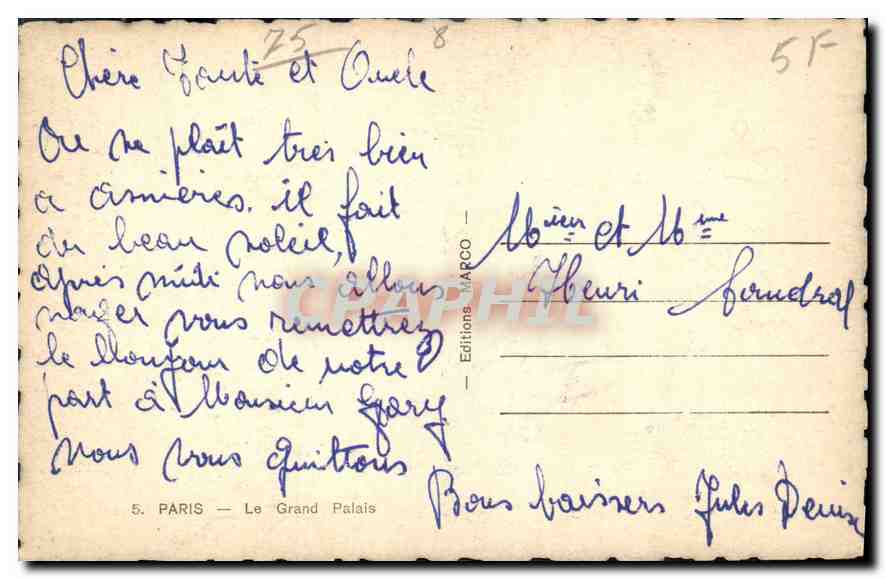 75
8
5F
Chère Tante et Oncle
On se plaît tres bien
a asnières. il fait
du beau soleil,
après midi nous allons
nager vous remettrez
le bonjour de notre
part à Monsieur Gary
nous vous quittons
Bons baisers Jules Denise
5. PARIS — Le Grand Palais
— Editions MARCO —
Mieur et Mme
Henri
CPAPHIL